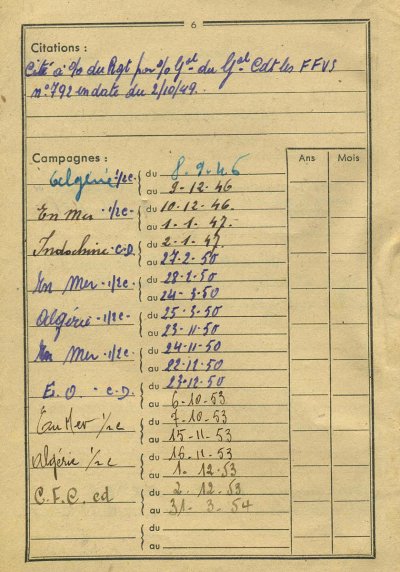 6
Citations :
Cité à l'o/o du Rgt par o/o Gal du Gal Cdt les FFVS
n° 792 en date du 2/10/49.
Campagnes :
Ans Mois
Algérie 1/2c. du 8.9.46
au 9-12-46
En Mer 1/2c- du 10.12.46.
au 1-1-47.
Indochine-c.D du 2-1-47.
au 27-2-50
En Mer -1/2c du 28-2-50
au 24-3-50
Algérie-1/2c- du 25-3-50
au 23-11-50
En Mer -1/2c. du 24-11-50
au 22-12-50
E.O. - c.D. du 23-12-50
au 6-10-53
En Mer 1/2c du 7-10-53
au 15-11-53
Algérie 1/2c du 16-11-53
au 1-12-53
C.F.C. cd du 2-12-53
au 31-3-54
du
au